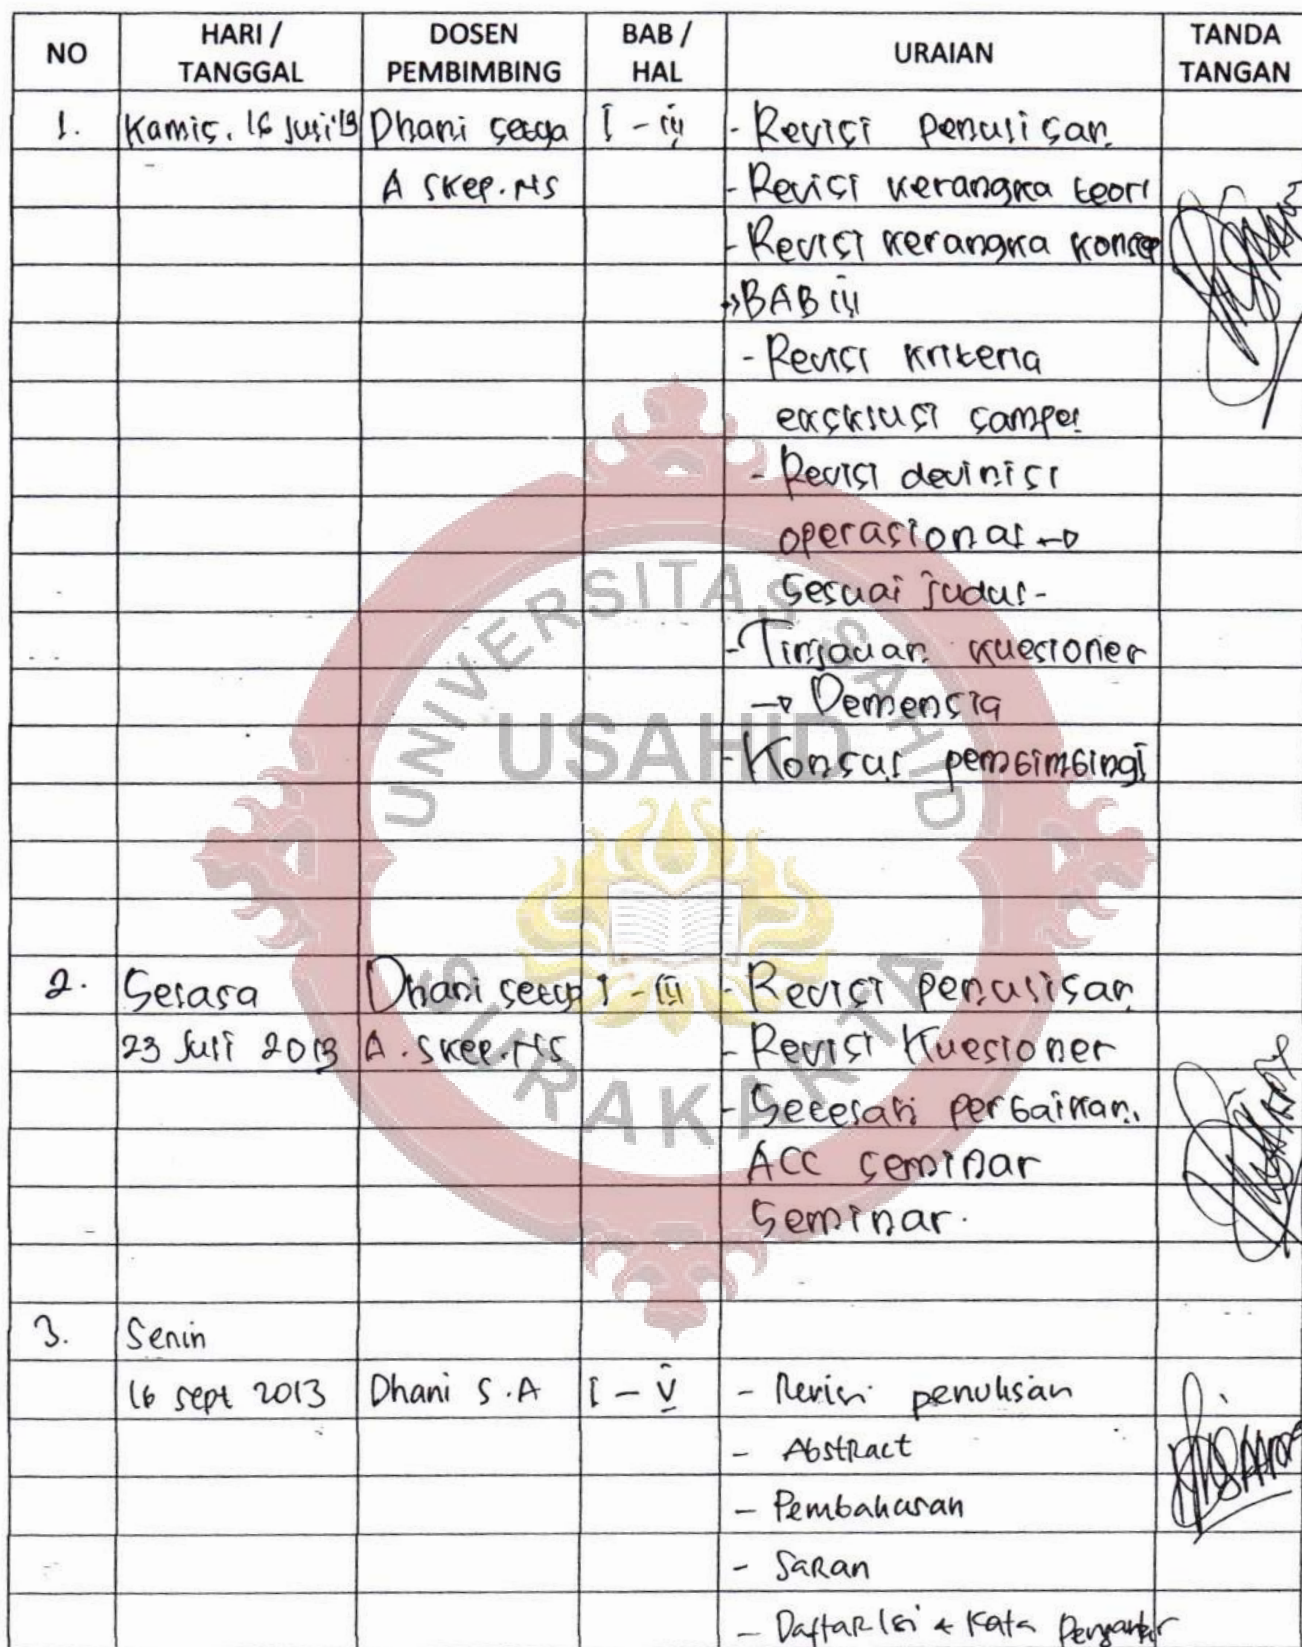 NO HARI / TANGGAL DOSEN PEMBIMBING BAB / HAL URAIAN TANDA TANGAN
1. Kamis, 18 Juli '13 Dhani Setya I - III - Revisi penulisan
A SKep.NS - Revisi kerangka teori
- Revisi kerangka konsep
BAB III
- Revisi kriteria
eksklusi sampel
- Revisi devinisi
operasional →
sesuai judul -
- Tinjauan kuesioner
→ Demensia
- Konsul pembimbing I
2. Selasa Dhani Setya I - III - Revisi penulisan
23 Juli 2013 A. SKep.NS - Revisi Kuesioner
- Setelah perbaikan
ACC seminar
Seminar.
3. Senin
16 Sept 2013 Dhani S.A I - V - Revisi penulisan
- Abstract
- Pembahasan
- Saran
- Daftar Isi & Kata Pengantar
UNIVERSITAS SAHID
USAHID
SURAKARTA